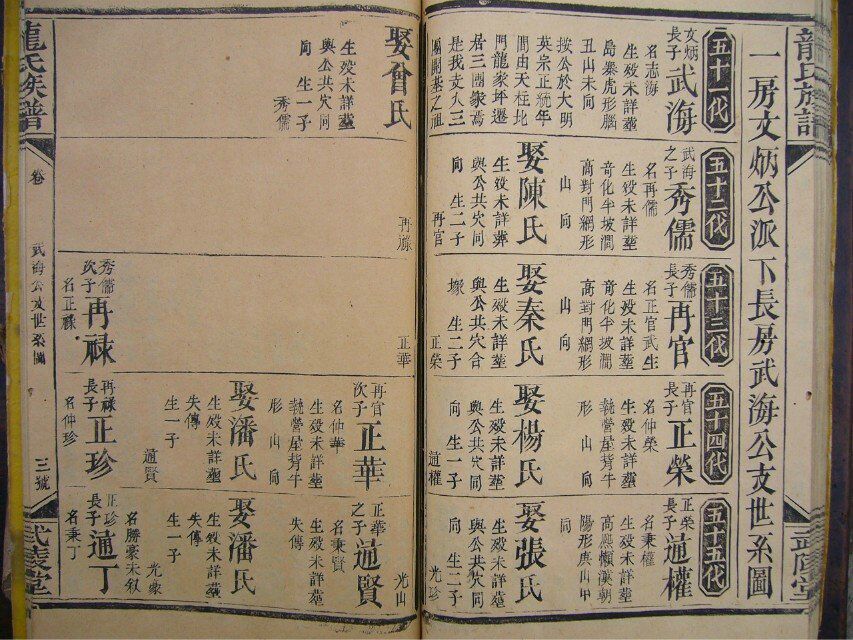 龍氏族譜
武陵堂
一房文炳公派下長房武海公支世系圖
五十一代
文炳
長子
武海
名志海
生殁未詳塟
島寨虎形腦
丑山未向
按公於大明
英宗正統年
間由天柱北
門龍家坪遷
居三團寨焉
是我支人三
團開基之祖
五十二代
武海
之子
秀儒
名再儒
生殁未詳塟
奇化半坡澗
高對門網形
山向
娶陳氏
生殁未詳葬
與公共穴同
向 生二子
再官
五十三代
秀儒
長子
再官
名正官武生
生殁未詳塟
奇化半坡澗
高對門網形
山向
娶秦氏
生殁未詳塟
與公共穴合
塚 生二子
正榮
五十四代
再官
長子
正榮
名仲榮
生殁未詳塟
執營屋背牛
形山向
娶楊氏
生殁未詳塟
與公共穴同
向 生一子
通權
五十五代
正榮
長子
通權
名秉權
生殁未詳塟
高興懶漢朝
陽形庚山甲
向
娶張氏
生殁未詳塟
與公共穴同
向 生一子
光珍
娶會氏
生殁未詳塟
與公共穴同
向 生一子
秀儒
再祿
正華
再官
次子
正華
名仲華
生殁未詳塟
執營屋背牛
形山向
娶潘氏
生殁未詳塟
失傳
生一子
通賢
正華
之子
通賢
名秉賢
生殁未詳塟
失傳
光山
娶潘氏
生殁未詳塟
失傳
生一子
光蒙
秀儒
次子
再祿
名正祿
再祿
長子
正珍
名仲珍
正珍
長子
通丁
名勝豪未敘
名秉丁
龍氏族譜
卷
武海公支世系圖
三號
武陵堂